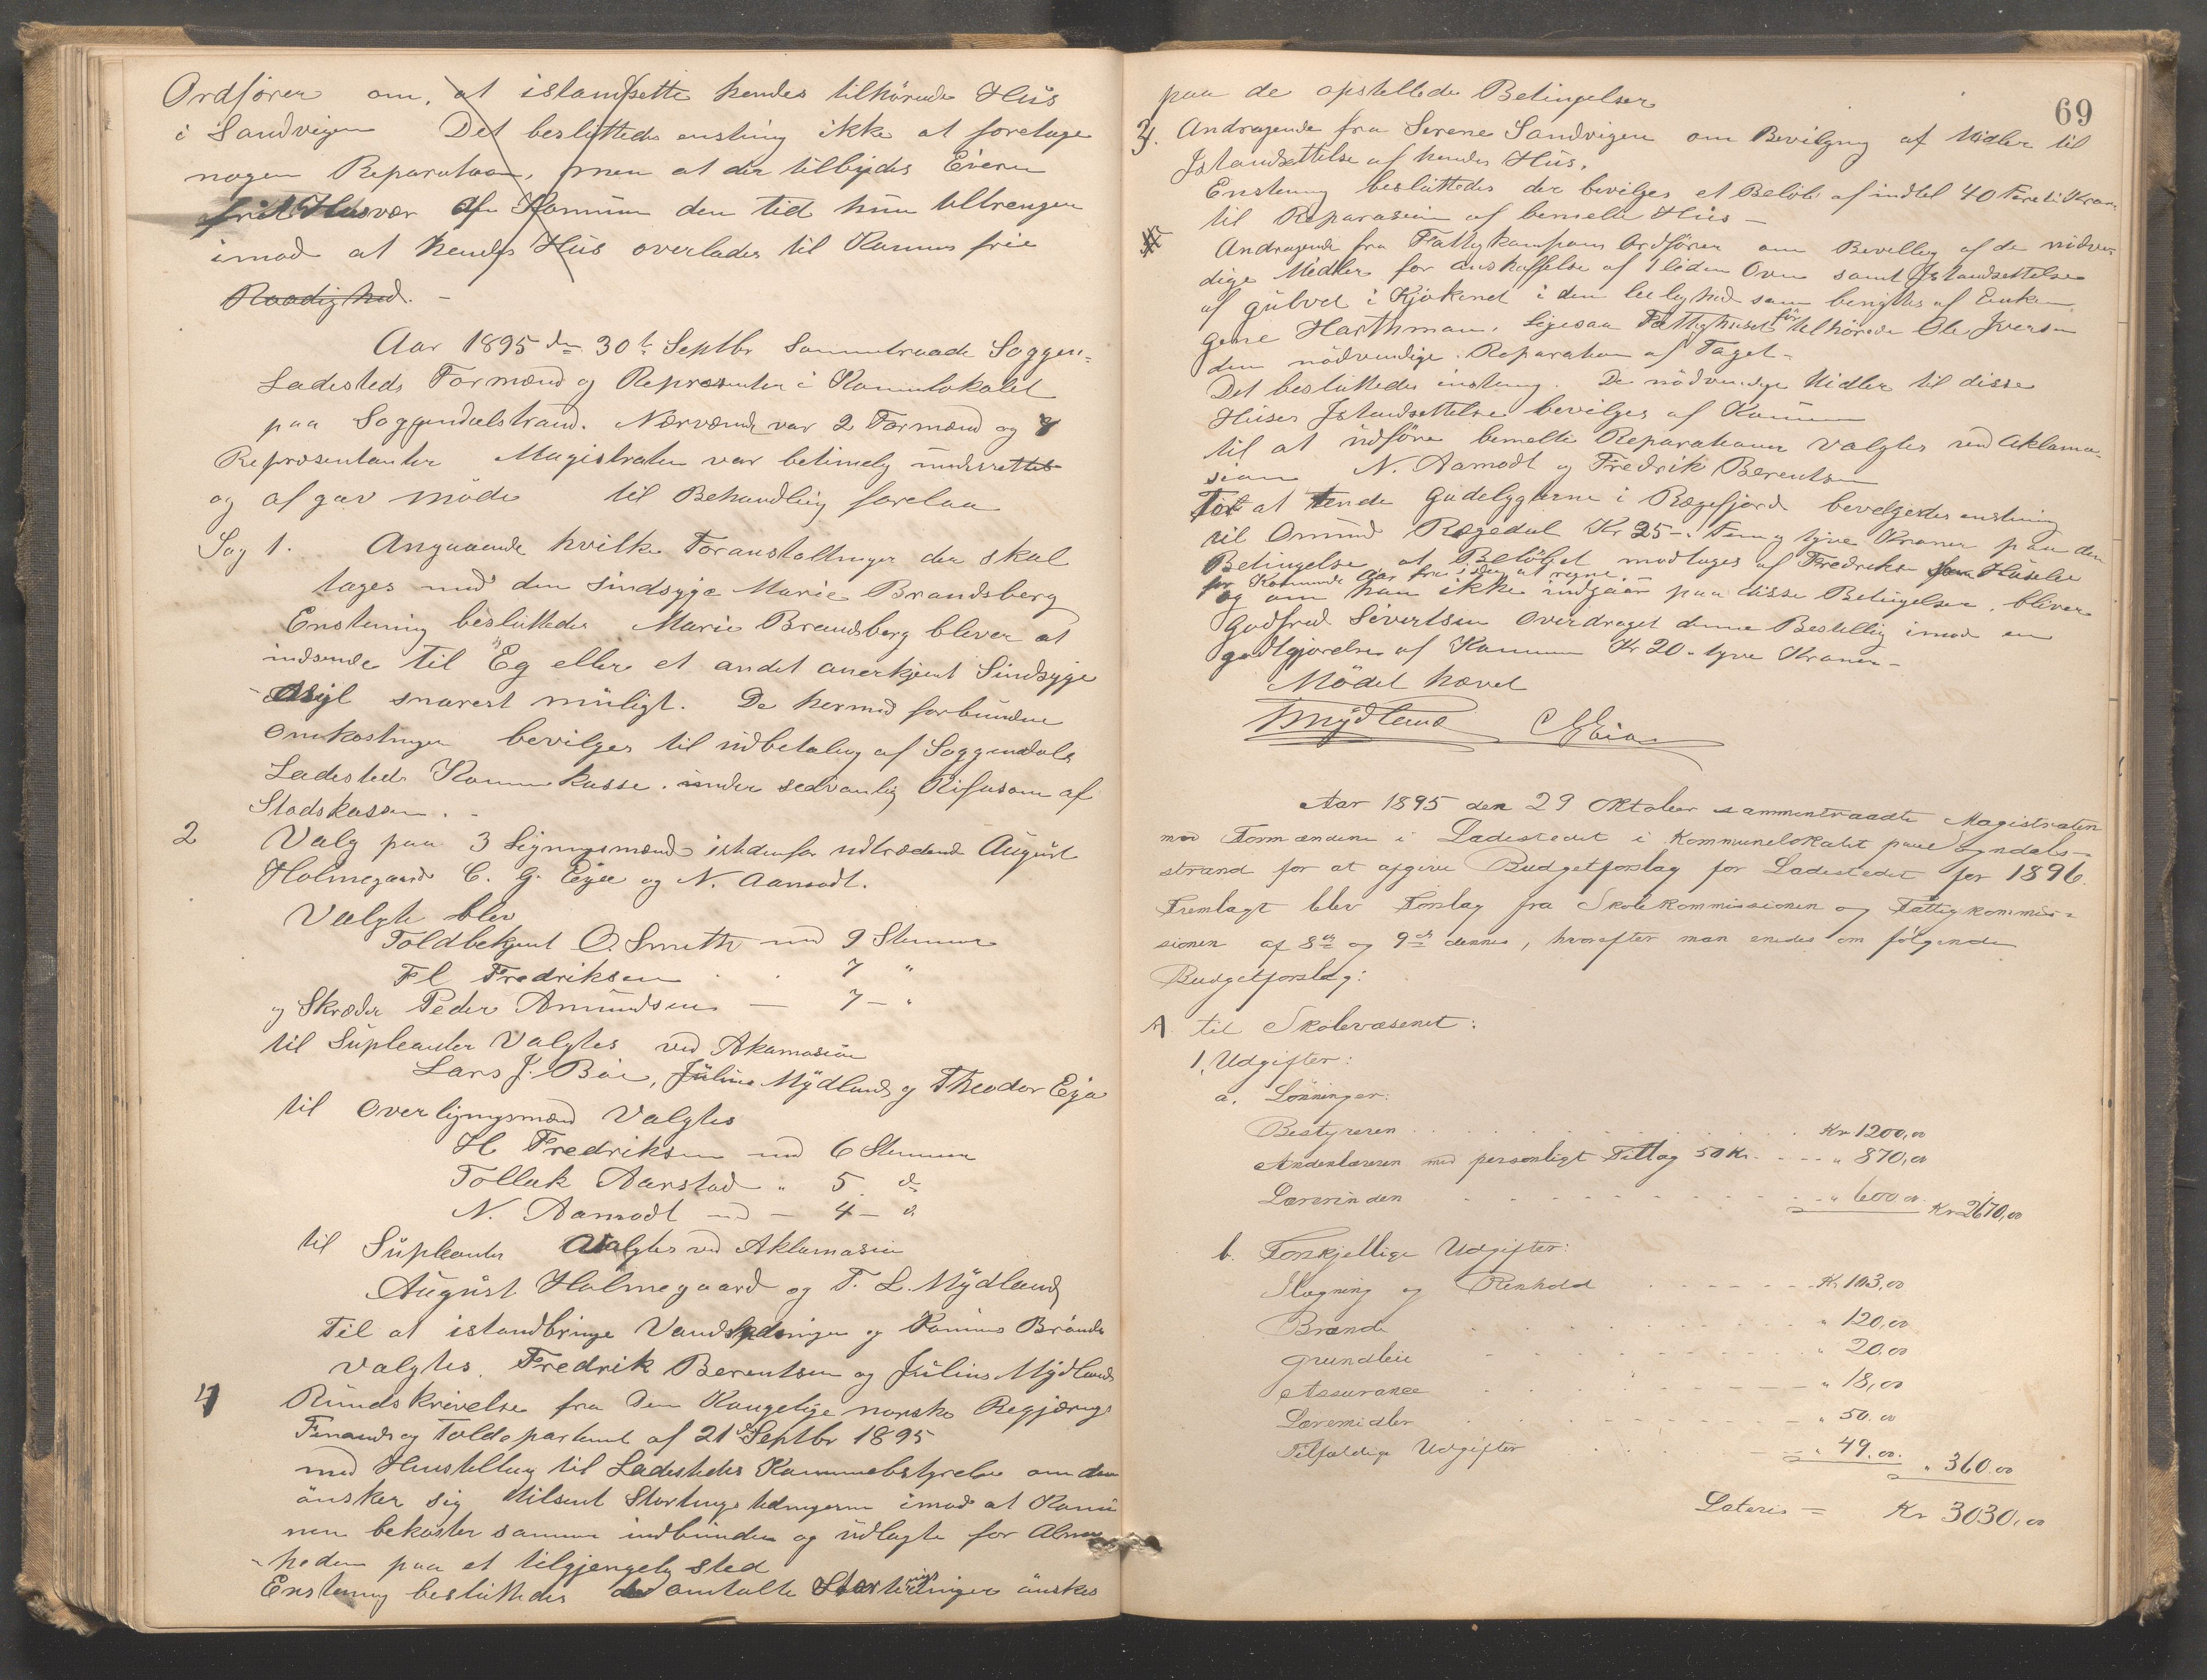 Ordføren om, at istandsette hendes tilhørende Hus
i Sandvigen Det besluttedes enstemig ikke at foretage
nogen Reparation, men at der tilbydes Eieren
frit Husvær af Komunen den tid hun tiltrenger
imod at hendes Hus overlades til Komunens frie
Raadighed. -
Aar 1895 den 30te Septbr Sammentraade Soggen-
Ladesteds Formænd og Representanter i Komunelokalet
paa Soggendalstrand. Nærværende var 2 Formænd og 7
Representanter Magistraten var betimelig underrettet
og afgav møde til Behandling forelaa
Sag 1. Angaaende hvilke Foranstaltninger der skal
tages med den sindsyge Marie Brandsberg
Enstemig besluttedes Marie Brandsberg bliver at
indsende til Eg eller et andet anerkjent Sindsyge
-asyl snarest muligt. De hermed forbundne
omkostninger bevilges til udbetaling af Soggendals
Ladesteds Komunekasse. under sedvanlig Rifusion af
Stadskassen. -
2 Valg paa 3 Ligningsmænd istedenfor udtrædende August
Holmegaard C. G. Eyie og N. Aamodt.
Valgte blev
Toldbetjent O. Smith med 9 Stemmer
Fl Fredriksen . . 7 "
og Skræder Peder Amundsen — 7 — "
til Supleanter Valgtes ved Akamasion
Lars J. Bøe, Julius Mydland og Theodor Eja
til Overligningsmænd Valgtes
H Fredriksen med 6 Stemmer
Tollak Aarstad " 5 do
N. Aamodt med — 4 — do
til Supleanter Valgtes ved Aklamasion
August Holmegaard og T. L. Mydland
Til at istandbringe Vandledningen og Komunens Brønde
valgtes. Fredrik Berentsen og Julius Mydland
4 Rundskrivelse fra Den Kongelige norske Regjærings
Finands og Tolddepartement af 21de Septbr 1895
med Henstilling til Ladestedets Kommunebstyrelse om den
ønsker sig tilsent Stortings tidningerne imod at Komu
nen bekoster samme indbunden og udlagte for Almen
-heden paa et tilgjengelig sted
Enstemig besluttedes de omtalte Stortingstidninger ønskes
69
paa de opstellede Betingelser
3. Andragende fra Serene Sandvigen om Bevilgning af Midler til
Istandsættelse af hendes Hus.
Enstemig besluttedes der bevilges et Beløb af indtil 40 Førti Kroner
til Reparasion af bemelte Hus —
Andragende fra Fattigkomisions Ordfører om Bevilling af de nødven-
dige Midler for anskaffelse af 1 liden Ovn samt Istandsettelse
af gulvet i Kjøkenet i den leilighed som benyttes af Enken
Gene Harthman. Ligesaa Fattighuset før tilhørende Ole Iversen
den nødvendige Reparation af Taget -
Det besluttedes enstemig. De nødvendige Midler til disse
Huses Istandsettelse bevilges af Komunen
til at udføre bemelte Reparationer valgtes ved Aklama-
sion N. Aamodt og Fredrik Berentsen
For at tende Gadelygterne i Rægefjord bevelgedes enstemig
til Omund Rægedal Kr 25 - Fem og tyve Kroner paa den
Betingelse at Beløbet modtages af Fredrikke Huselse
for Kommende Aar fra iden at regne.
og om han ikke indgaar paa disse Betingelser, bliver
Godfred Sivertsen Overdraget denne Bestilling imod en
godtgjørelse af Komunen Kr 20 - tyve Kroner -
Mödet hævet
TMydland CGEie
Aar 1895 den 29 Oktober sammentraadte Magistraten
med Formændene i Ladestedet i Kommunelokalet paa Sogndals-
strand for at afgive Budgetforslag for Ladestedet for 1896.
Fremlagt blev Forslag fra Skolekommissionen og Fattigkommis-
sionen af 8de og 9de dennes, hvorefter man enedes om følgende
Budgetforslag:
A til Skolevæsenet:
1. Udgifter:
a. Lønninger:
Bestyreren . . . . . Kr 1200,00
Andenlæreren med personligt Tillæg 50 Kr. - - - " 870,00
Lærerinden - - - - - " 600 00 Kr 2670,00
b. Forskjellige Udgifter:
Lægning og Renhold - - - - Kr 103,00
Brænde . . . . . " 120,00
Grundleie - - - - " 20.00
Assurance . . . . . " 18,00
Læremidler . . . . . " 50.00
Tilfældige Udgifter . . . . " 49.00. " 360.00
Lateris = Kr 3030,00